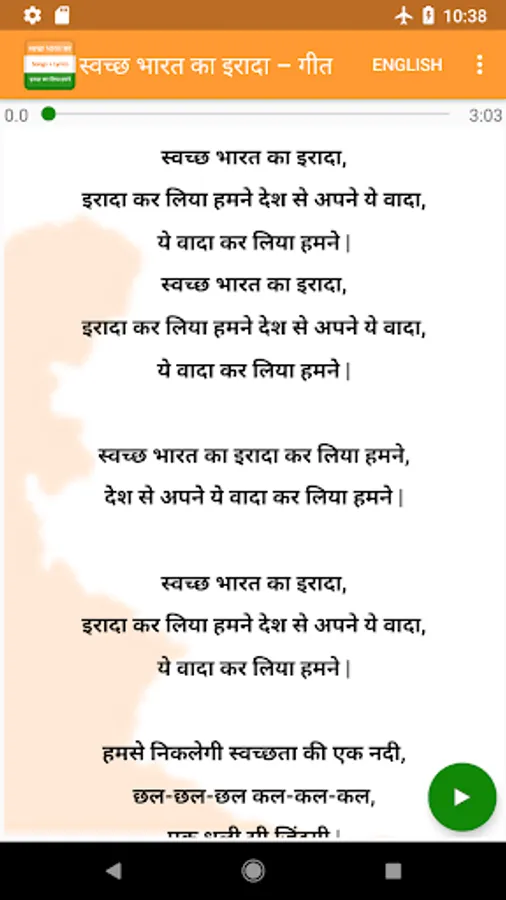 10:38
स्वच्छ भारत का इरादा – गीत
ENGLISH
0.0
3:03
स्वच्छ भारत का इरादा,
इरादा कर लिया हमने देश से अपने ये वादा,
ये वादा कर लिया हमने |
स्वच्छ भारत का इरादा,
इरादा कर लिया हमने देश से अपने ये वादा,
ये वादा कर लिया हमने |
स्वच्छ भारत का इरादा कर लिया हमने,
देश से अपने ये वादा कर लिया हमने |
स्वच्छ भारत का इरादा,
इरादा कर लिया हमने देश से अपने ये वादा,
ये वादा कर लिया हमने |
हमसे निकलेगी स्वच्छता की एक नदी,
छल-छल-छल कल-कल-कल,